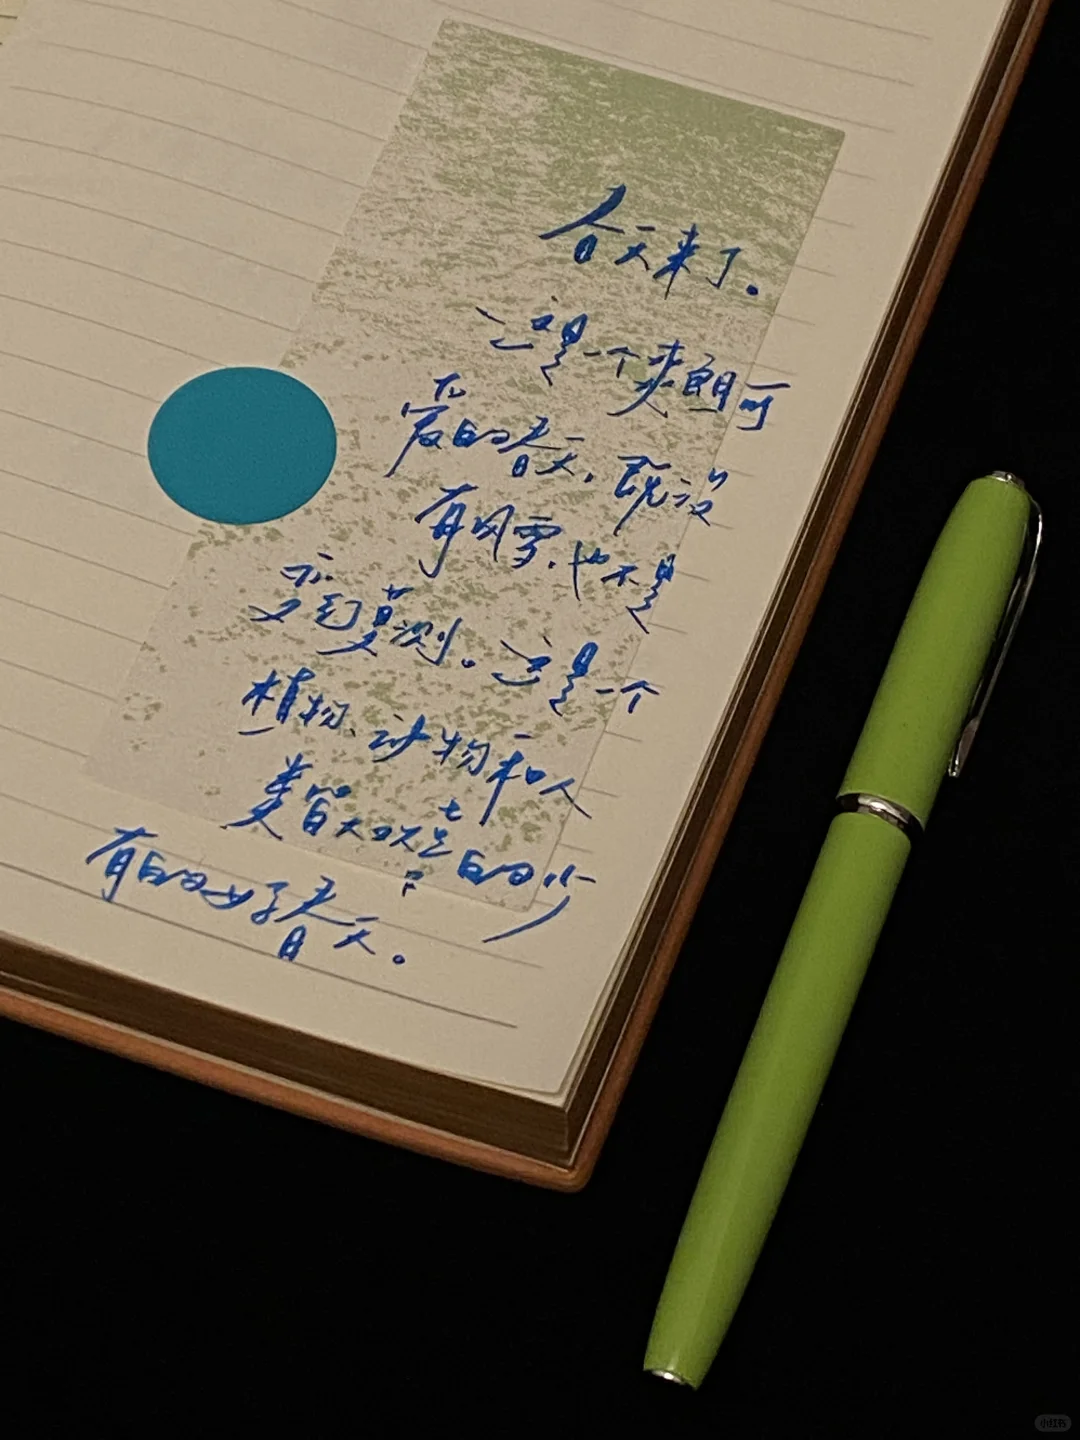 春天来了。
这是一个爽朗可
爱的春天，既没
有风雪，也不是
变幻莫测。这是一个
植物、动物和人
类皆大欢喜的少
有的好春天。
小红书